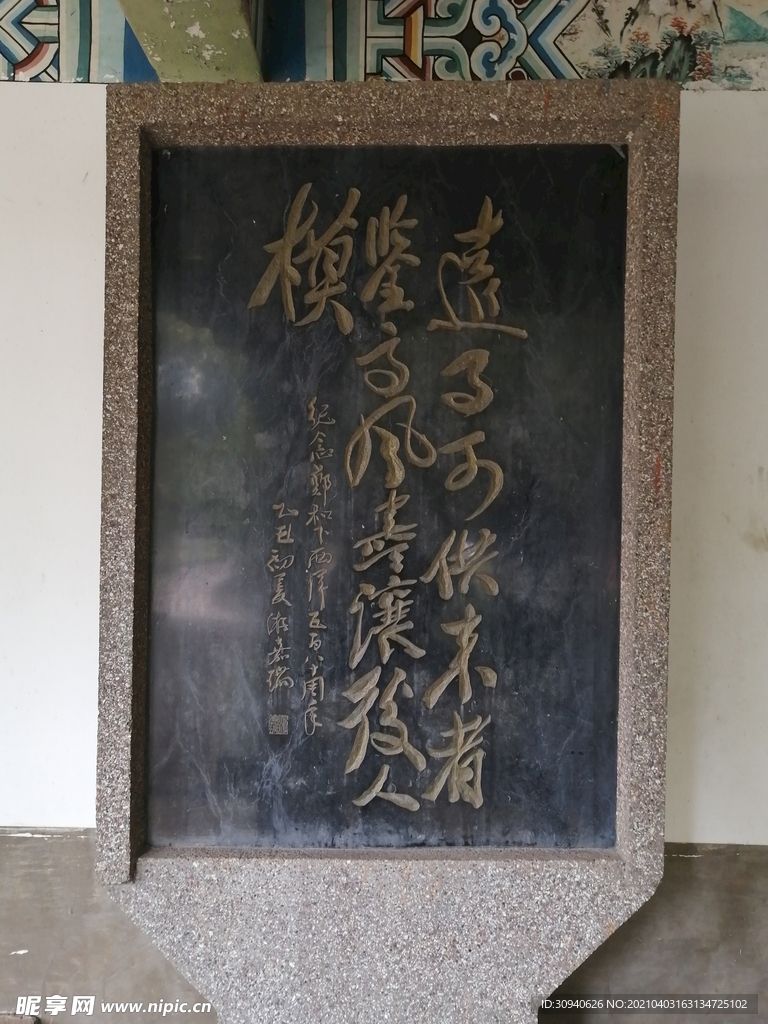 遠事可供来者
鑒高風盡讓後人
模
紀念鄭和下西洋五百八十周年
乙丑初夏游嘉瑞
昵享网 www.nipic.cn
ID:30940626 NO:20210403163134725102